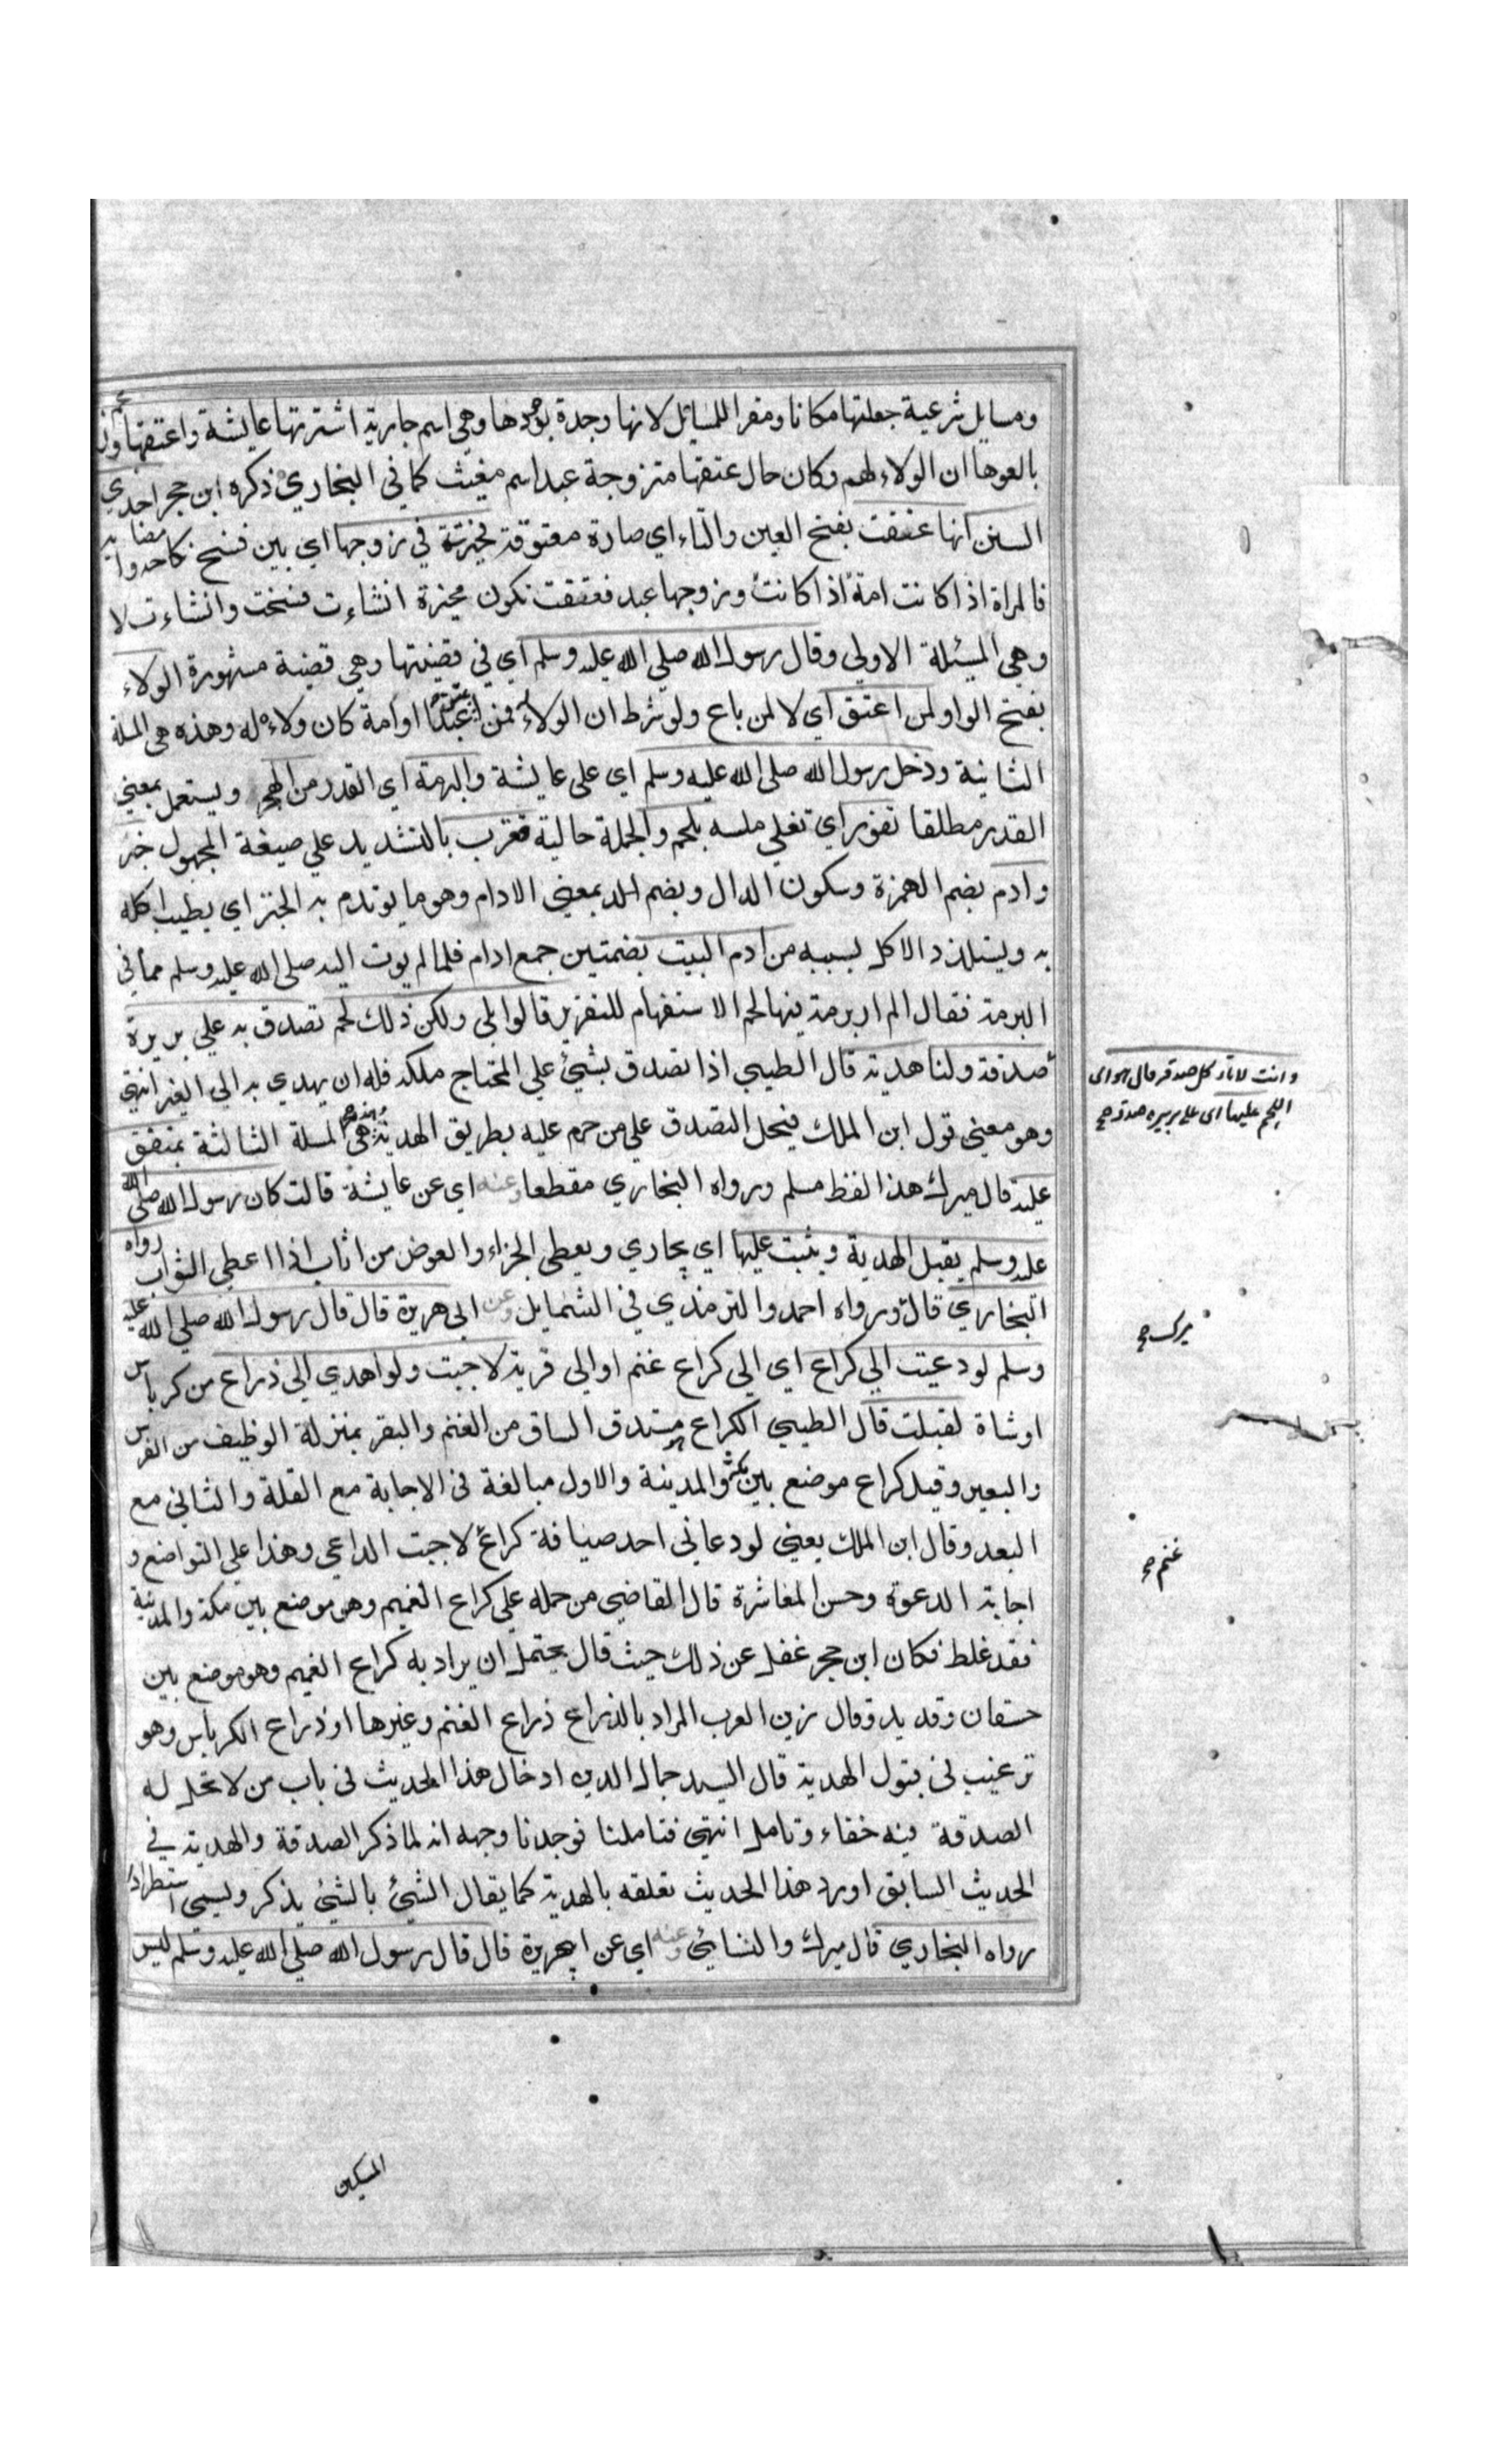 ومسايل شرعية جعلتها مكانا ومقرا للمسائل لانها وجدة بوجودها وهي اسم جارية اشترتها عايشة واعتقتها وزعم
بالعوها ان الولاء لهم وكان حال عتقها متزوجة عبد اسم مغيث كما في البخاري ذكره ابن حجر احدي
السنن انها عتقت بفتح العين والتاء اي صارة معتوقة فخيرت في زوجها اي بين فسخ نكاحه وامضايه
فالمراة اذا كانت امة اذا كانت وزوجها عبد فعتقت تكون مخيرة انشاءت فسخت وانشاءت لا
وهي المسئلة الاولي وقال رسول الله صلي الله عليه وسلم اي في قضيتها وهي قضية مشهورة الولاء
بفتح الواو لمن اعتق اي لا لمن باع ولو شرط ان الولاء له فمن اعتق عبدا او امة كان ولاءه له وهذه هي المسلة
الثانية ودخل رسول الله صلى الله عليه وسلم اي على عايشة والبرمة اي القدر من الحجر ويستعمل بمعني
القدر مطلقا تفور اي تغلي ملسه بلحم والجملة حالية فقرب بالتشديد علي صيغة المجهول خبز
وادم بضم الهمزة وسكون الدال وبضم الد بمعني الادام وهو ما يوتدم به الخبز اي يطيب اكله
به ويتلذذ الاكل بسببه من ادم البيت بضمتين جمع ادام فلما لم يوت اليه صلى الله عليه وسلم مما في
البرمة فقال الم ار برمة فيها لحم الاستفهام للتقرير قالوا بلي ولكن ذلك لحم تصدق به علي بريرة
صدقة ولنا هدية قال الطيبي اذا تصدق بشئ علي المحتاج ملكه فله ان يهدي به الي الغير انتهي
وهو معني قول ابن الملك فيحل التصدق علي من حرم عليه بطريق الهدية وهذه هي المسلة الثالثة متفق
عليه قال ميرك هذا لفظ مسلم ورواه البخاري مقطعا وعنه اي عن عايشة قالت كان رسول الله صلى الله
عليه وسلم يقبل الهدية ويثيب عليها اي يجازي ويعطي الجزاء والعوض من اثاب اذا اعطي الثواب رواه
البخاري قال ورواه احمد والترمذي في الشمايل وعن ابي هريرة قال قال رسول الله صلي الله عليه
وسلم لو دعيت الي كراع اي الي كراع غنم او الي قرية لاجبت ولو اهدي الي ذراع من كرباس
او شاة لقبلت قال الطيبي الكراع مستدق الساق من الغنم والبقر بمنزلة الوظيف من الفرس
والبعير وقيل كراع موضع بين مكة والمدينة والاول مبالغة في الاجابة مع القلة والثاني مع
البعد وقال ابن الملك يعني لو دعاني احد ضيافة كراع لاجبت الداعي وهذا علي التواضع و
اجابة الدعوة وحسن المعاشرة قال القاضي من حمله علي كراع الغميم وهو موضع بين مكة والمدينة
فقد غلط فكان ابن حجر غفل عن ذلك حيث قال يحتمل ان يراد به كراع الغميم وهو موضع بين
حسفان وقديد وقال زين العرب المراد بالذراع ذراع الغنم وغيرها او ذراع الكرباس وهو
ترغيب في قبول الهدية قال السيد جمال الدين ادخال هذا الحديث في باب من لا تحل له
الصدقة فيه خفاء وتامل انتهي فتاملنا فوجدنا وجهه انه لما ذكر الصدقة والهدية في
الحديث السابق اورد هذا الحديث تعلقه بالهدية كما يقال الشئ بالشئ يذكر ويسمي استطرادا
رواه البخاري قال ميرك والنسائي وعنه اي عن ابهريرة قال قال رسول الله صلي الله عليه وسلم ليس
وانت لا تاكل صدقة قال هو اى
اللحم عليها اى على بريره صدقة صح
ميرك صح
غنم صح
المسكين